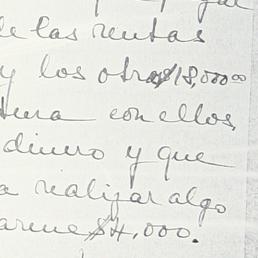 de las rentas
y los otros $18,000.00
con ellos,
dinero y que
a realizar algo
arme $4,000.